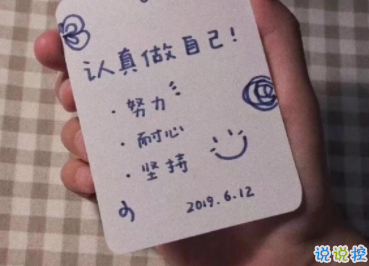 认真做自己！
·努力
·耐心
·坚持
2019.6.12
说说控